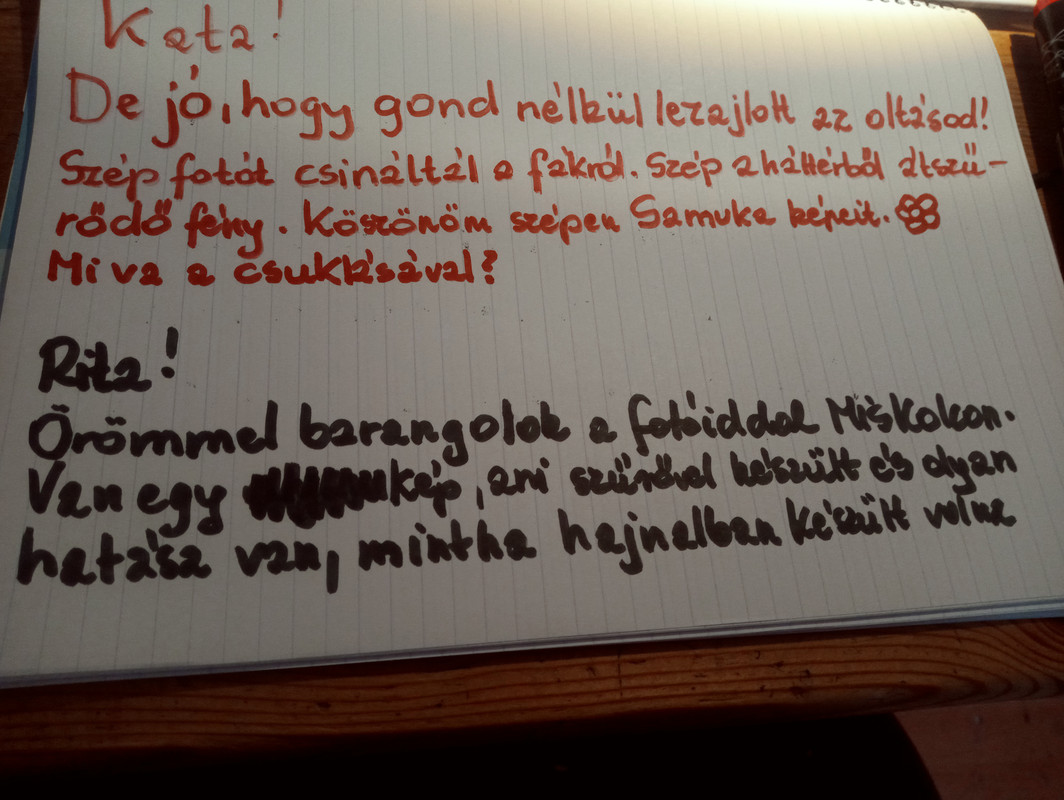 Kata!
De jó, hogy gond nélkül lezajlott az oltásod!
Szép fotót csináltál a fákról. Szép a háttérből átszű-
rődő fény. Köszönöm szépen Samuka képeit.
Mi va a csuklásával?
Rita!
Örömmel barangolok a fotóiddal Miskolcon.
Van egy kép, ami szűrővel készült és olyan
hatása van, mintha hajnalban készült volna